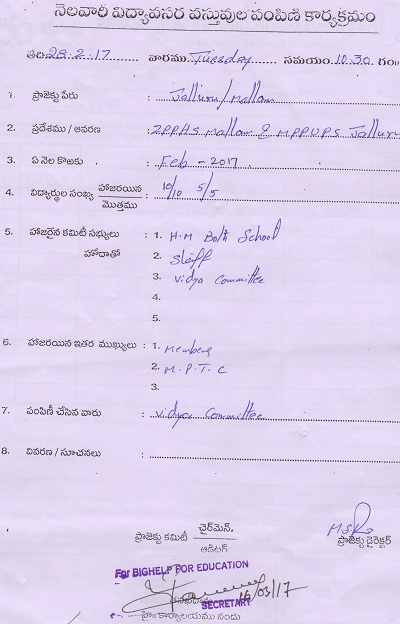 నెలవారీ విద్యావసర వస్తువుల పంపిణి కార్యక్రమం
తేది: 28.2.17 వారము Tuesday సమయం: 10.30 గం॥
1. ప్రాజెక్టు పేరు : Jalluru / Mallam
2. ప్రదేశము / ఆవరణ : ZPPHS Mallam & MPPUPS Jalluru
3. ఏ నెల కొఱకు : Feb - 2017
4. విద్యార్థుల సంఖ్య హాజరయిన మొత్తము : 10/10 5/5
5. హాజరైన కమిటీ సభ్యులు : 1. H.M Both School
హోదాతో 2. Staff
3. Vidya Committee
4.
5.
6. హాజరయిన ఇతర ముఖ్యులు : 1. Members
2. M.P.T.C
3.
7. పంపిణీ చేసిన వారు : Vidya Committee
8. వివరణ / సూచనలు :
ప్రాజెక్టు కమిటీ చైర్‌మెన్. ఆడిటర్ ప్రాజెక్టు డైరెక్టర్
For BIGHELP FOR EDUCATION
SECRETARY 16/03/17
కార్యాలయము నందు